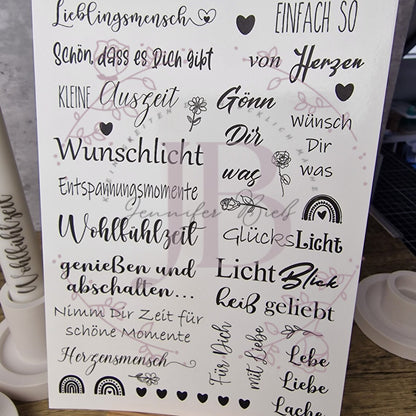 Lieblingsmensch
EINFACH SO
Schön, dass es Dich gibt
von Herzen
KLEINE Auszeit
Gönn
Dir
was
Wünsch
Dir
was
Wunschlicht
Entspannungsmomente
Wohlfühlzeit
GlücksLicht
genießen und
abschalten...
LichtBlick
heiß geliebt
Nimm Dir Zeit für
schöne Momente
Herzensmensch
Für Dich
mit Liebe
Lebe
Liebe
Lache
Jennifer Bieb
JB
Wohlfühlzeit